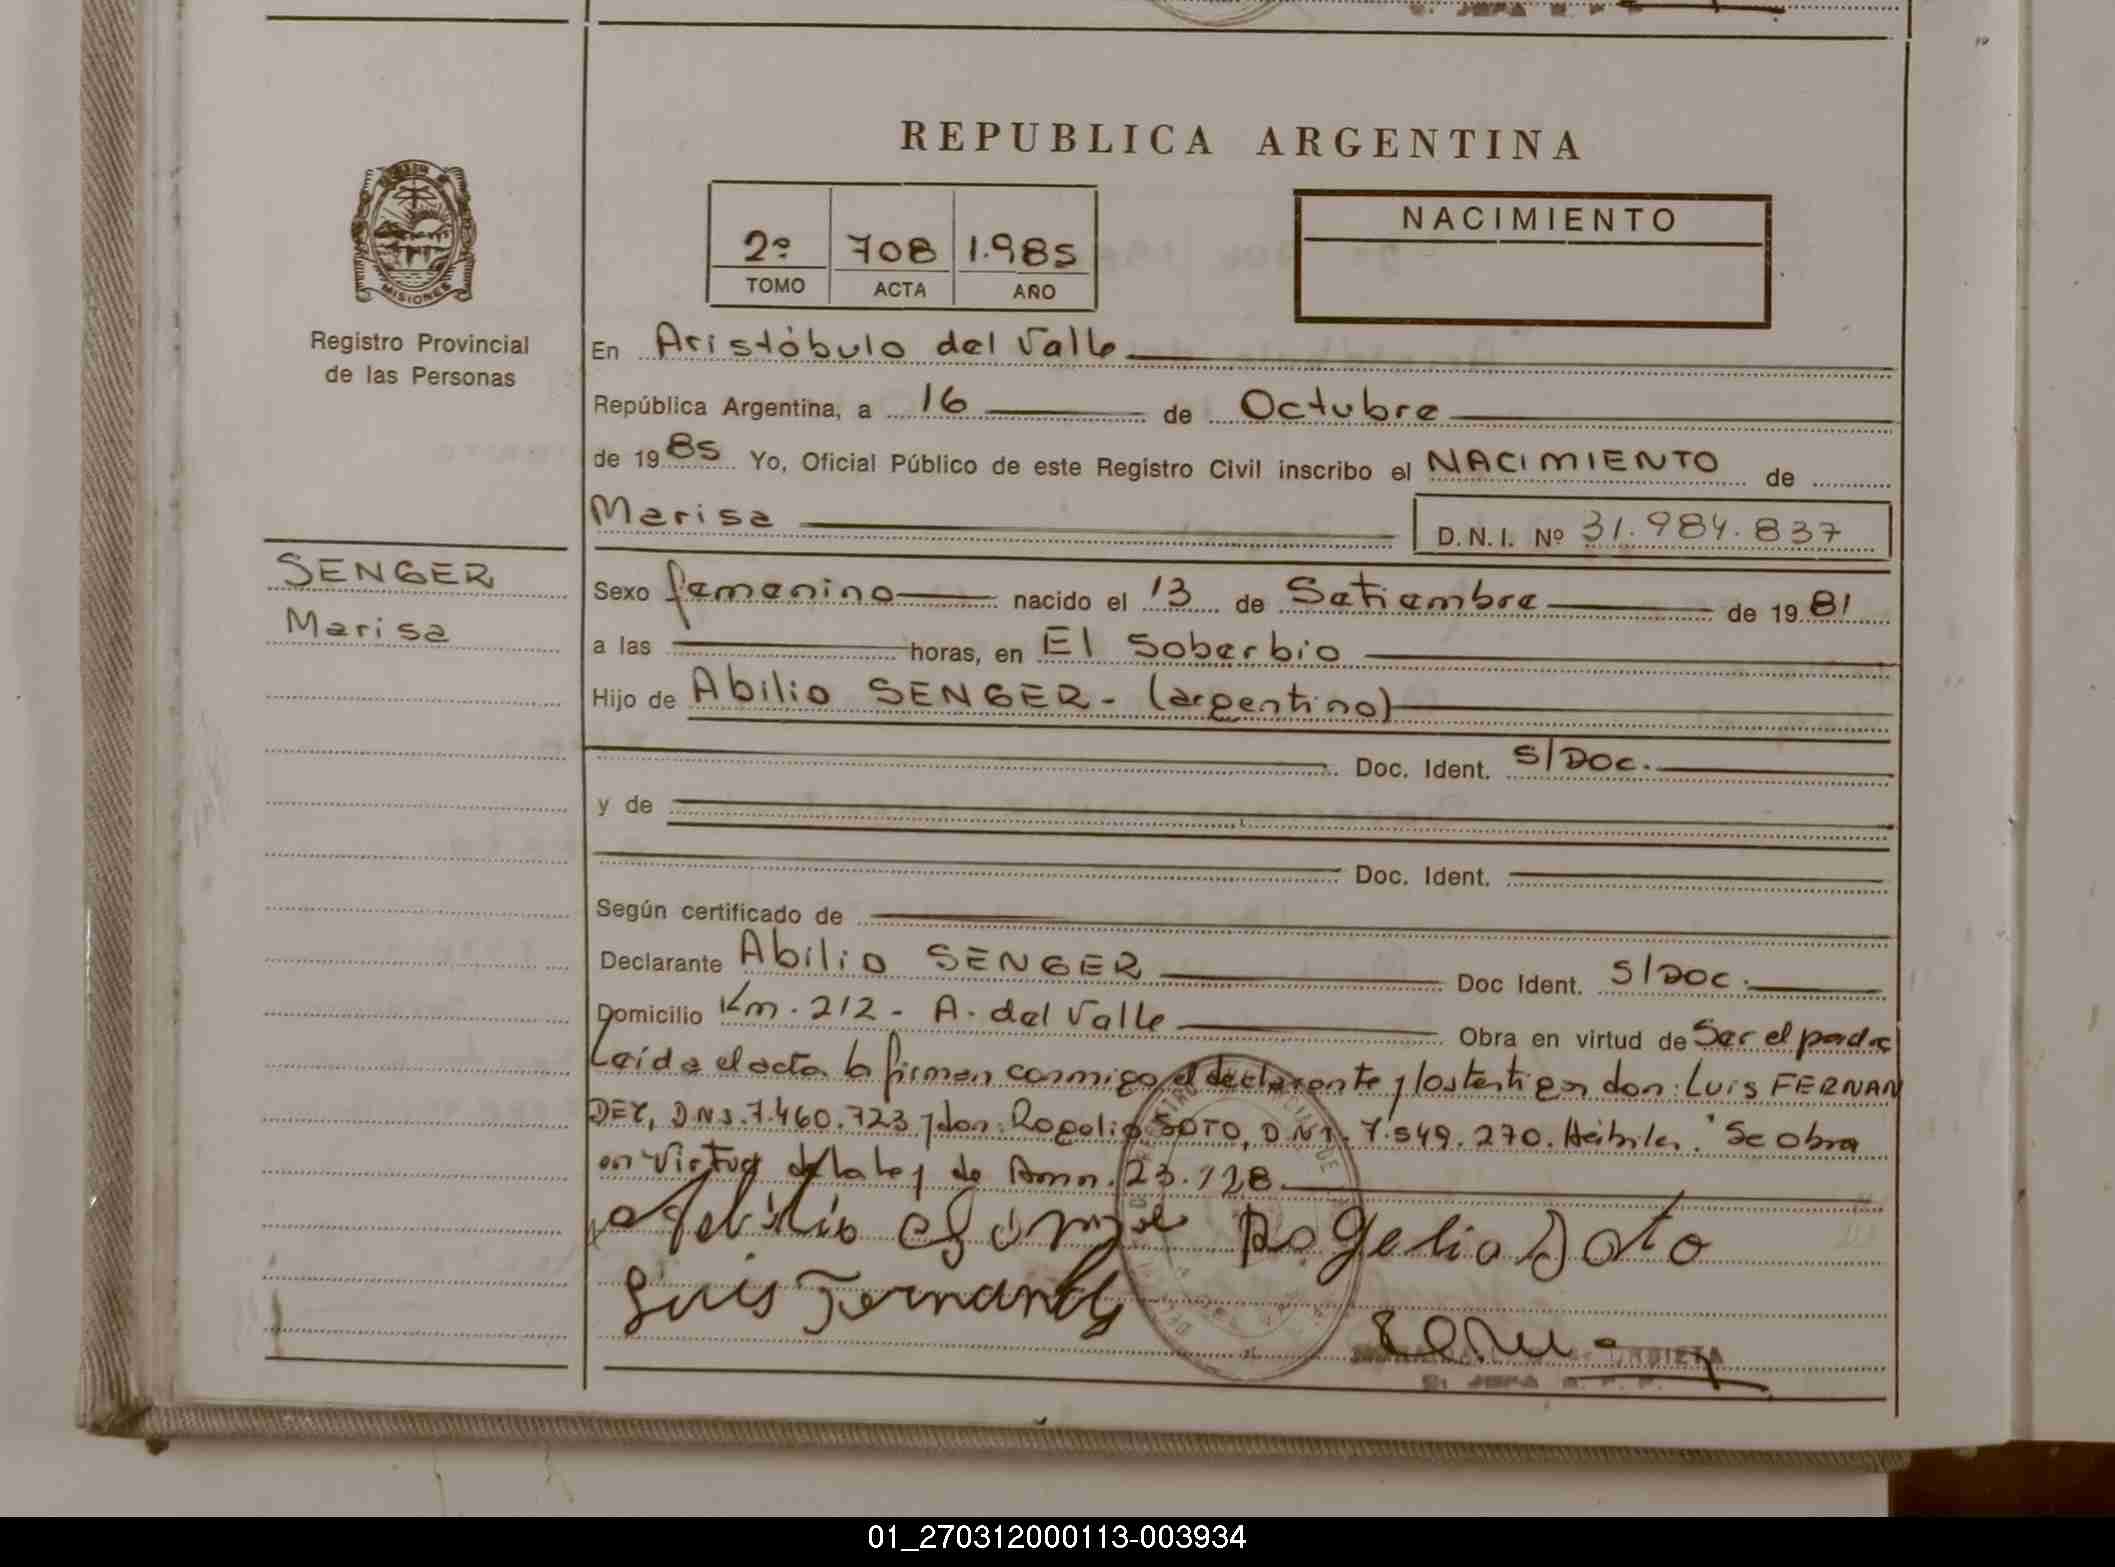 REPUBLICA ARGENTINA
2º 708 1.985
TOMO ACTA AÑO
NACIMIENTO
MISIONES
Registro Provincial
de las Personas
SENGER
Marisa
En Aristóbulo del Valle
República Argentina, a 16 de Octubre
de 1985 Yo, Oficial Público de este Registro Civil inscribo el NACIMIENTO de
Marisa D.N.I. Nº 31.984.837
Sexo femenino nacido el 13 de Setiembre de 1981
a las horas, en El Soberbio
Hijo de Abilio SENGER - (argentino)
Doc. Ident. S/Doc.
y de
Doc. Ident.
Según certificado de
Declarante Abilio SENGER Doc Ident. S/Doc.
Domicilio Km. 212 - A. del Valle Obra en virtud de Ser el padre
Leída el acta la firman conmigo el declarante y los testigos don: Luis FERNAN
DEZ, DNI. 7.460.723 y don: Rogelio SOTO, DNI. 7.549.270. Hábiles. Se obra
en virtud de la ley de Amn. 23.128
Rogelio Soto
Luis Fernandez
URBIETA
JEFA R. P. P.
01_270312000113-003934